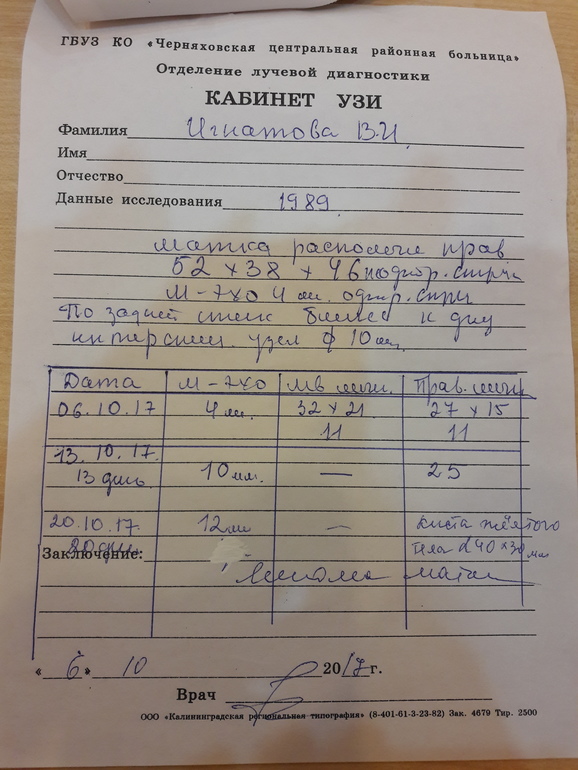 ГБУЗ КО «Черняховская центральная районная больница»
Отделение лучевой диагностики
КАБИНЕТ УЗИ
Фамилия Игнатова В.И.
Имя
Отчество
Данные исследования 1989
матка располож прав
52 х 38 х 46
М-эхо 4 мм.
По задней стенк ближе к дну
узел ф 10 мм
Дата М-эхо яичн. Прав. яичн
06.10.17 4 мм. 32 х 21 27 х 15
11 11
13.10.17.
13 день 10 мм. — 25
20.10.17 12 мм — киста жёлтого
Заключение: тела d 40 х 30 мм
матки
« 6 » 10 2017 г.
Врач
ООО «Калининградская региональная типография» (8-401-61-3-23-82) Зак. 4679 Тир. 2500